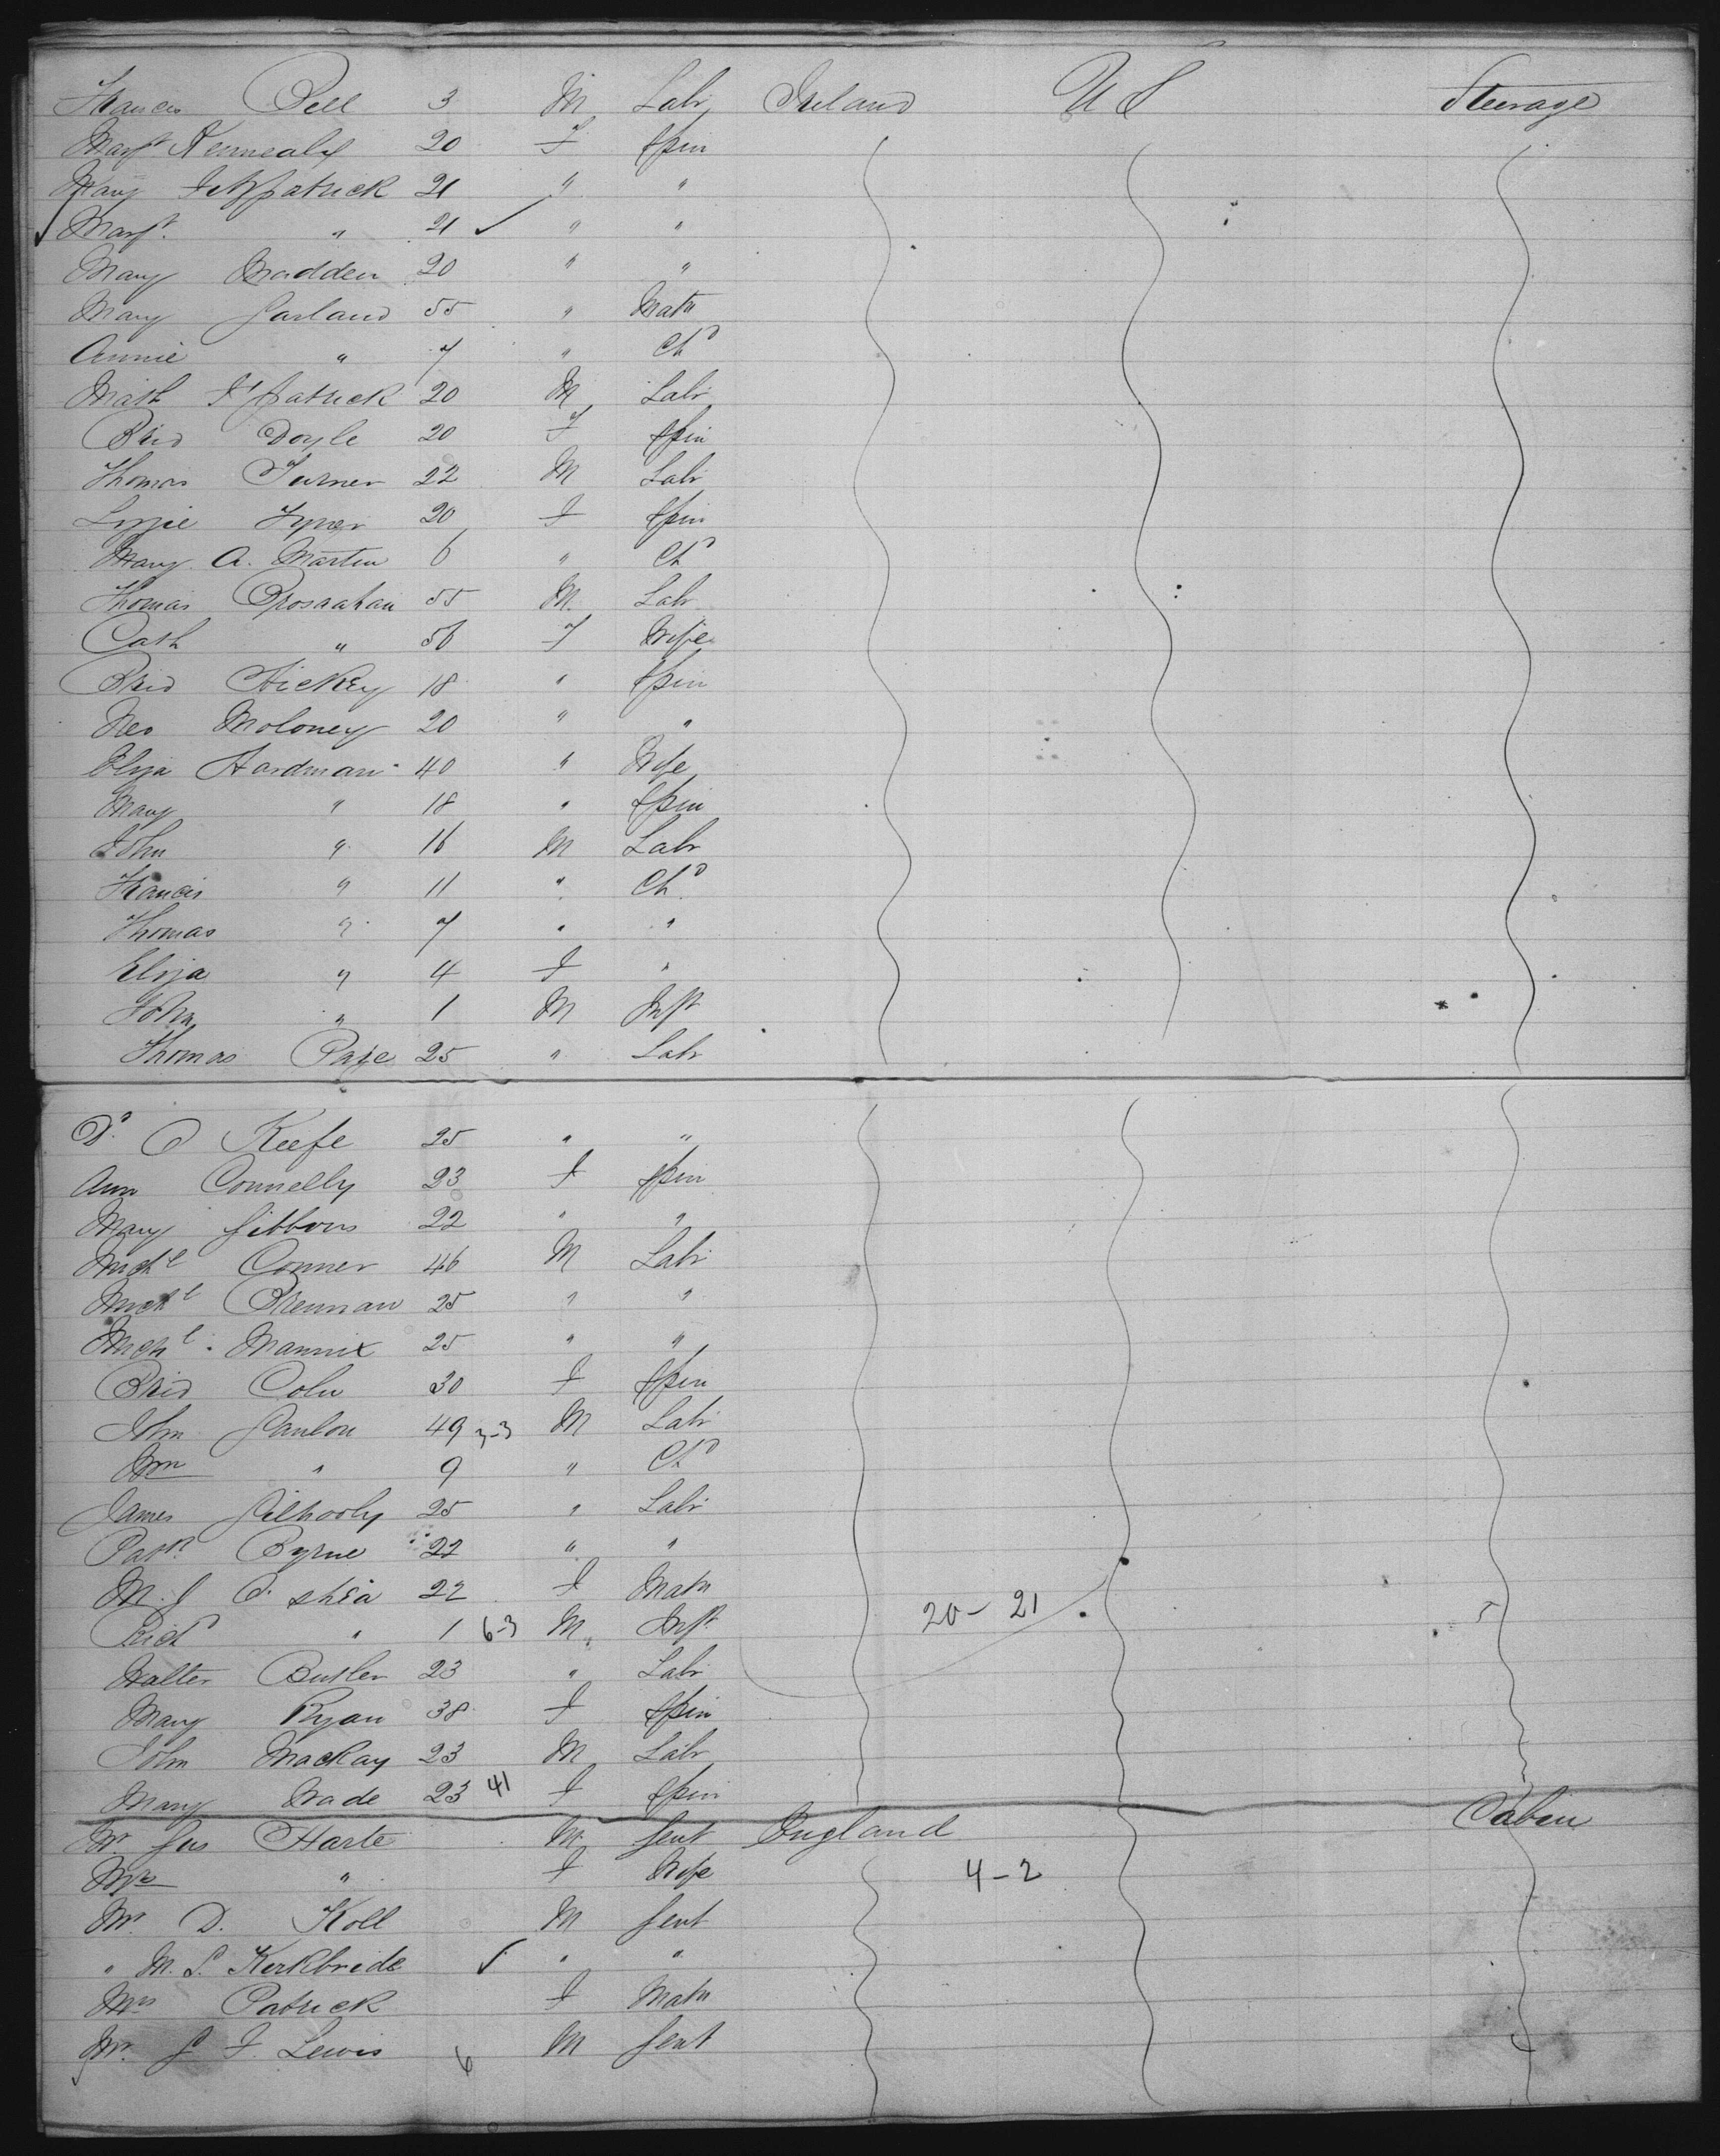 Francis Bell 3 M Labr Ireland U S Steerage
Margt Kennealy 20 F Spin
Mary Fitzpatrick 21 " "
Margt " 21 ✓ " "
Mary Madden 20 " "
Mary Garland 55 " Matn
Annie " 7 " Chd
Math Ftpatrick 20 M Labr
Brid Doyle 20 F Spin
Thomas Turner 22 M Labr
Lizzie 20 F Spin
Mary A. Martin 6 " Chd
Thomas 55 M. Labr
Cath " 56 F Wife
Brid Hickey 18 " Spin
Moloney 20 " "
Eliza Hardman 40 " Wife
Mary " 18 " Spin
John " 16 M Labr
Francis " 11 " Chd
Thomas " 7 " "
Eliza " 4 F "
John " 1 M Inft
Thomas Page 25 " Labr
Dd. O Keefe 25 " "
Ann Connelly 23 F Spin
Mary Gibbons 22 " "
Michl Conner 46 M Labr
Michl Brennan 25 " "
Michl Mannix 25 " "
Brid 30 F Spin
John Ganlon 49 3-3 M Labr
Wm " 9 " Chd
James Gilhooly 25 " Labr
Patk. Byrne 22 " "
M. J O. Shea 22 F Matn
Richd " 1 6-3 M Inft 20-21 5
Walter Butler 23 " Labr
Mary Ryan 38 F Spin
John Mackay 23 M Labr
Mary Wade 23 41 F Spin
Mr. Gus Harte M Gent England Cabin
Mrs " F Wife 4-2
Mr. D. Koll M Gent
" M. S. Kirkbride ✓ " "
Mrs Patrick F Matn
Mr. G F. Lewis 6 M Gent